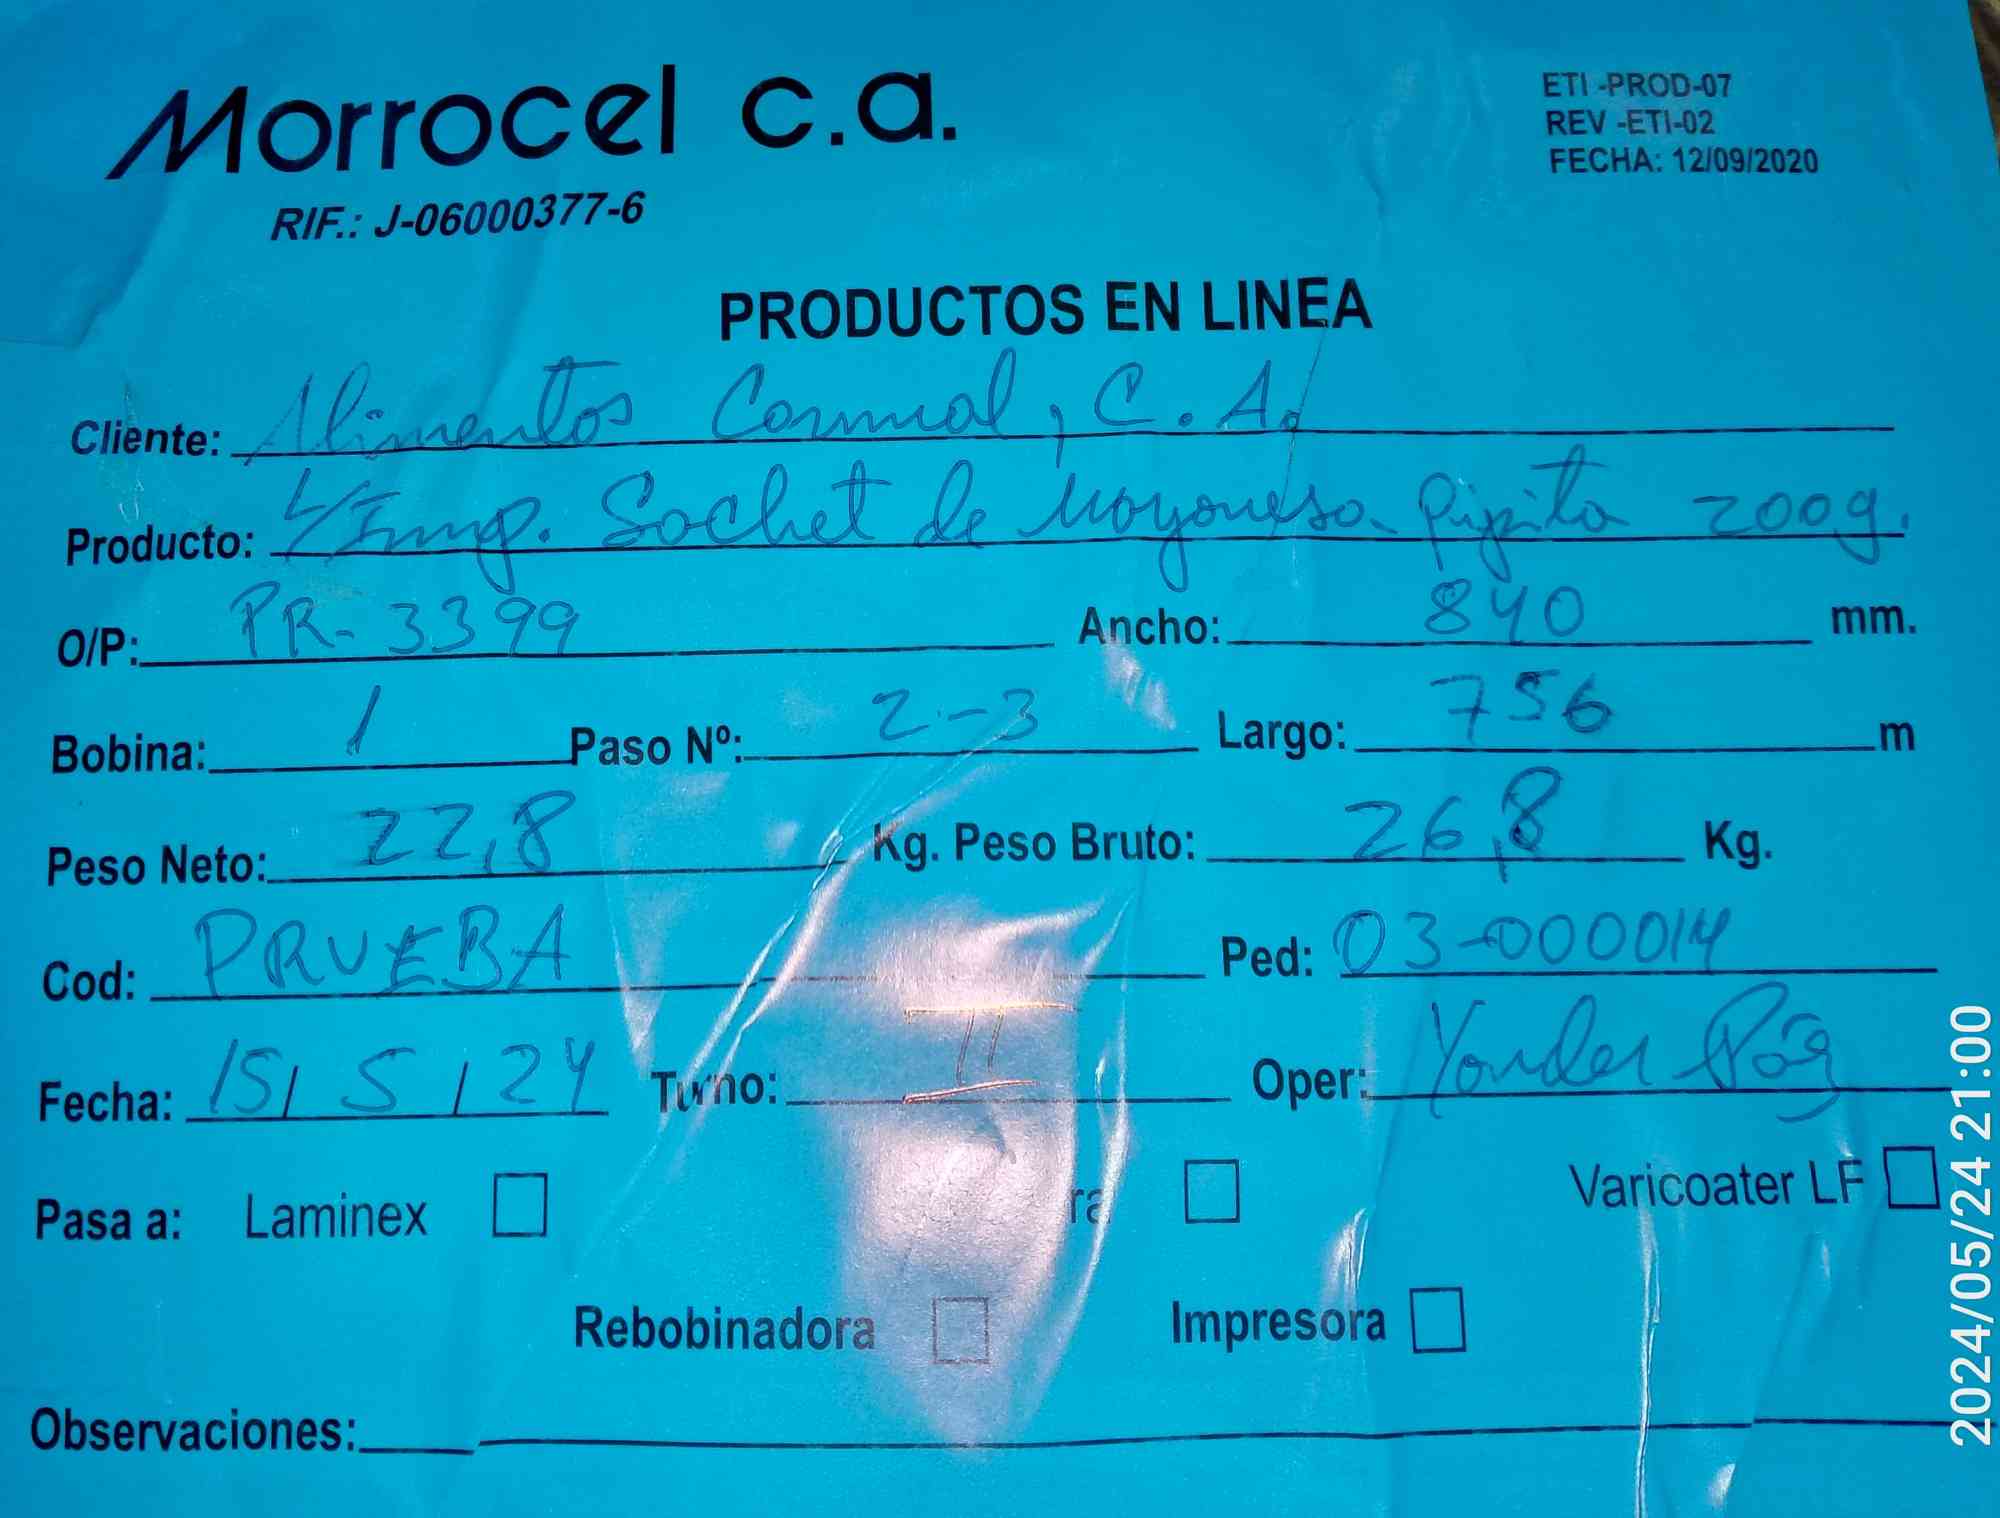 Morrocel c.a.
RIF.: J-06000377-6
ETI -PROD-07
REV -ETI-02
FECHA: 12/09/2020
PRODUCTOS EN LINEA
Cliente: Alimentos C.A.
Producto: L/Imp. Sachet de Mayonesa Pipita 200g.
O/P: PR-3399 Ancho: 840 mm.
Bobina: 1 Paso Nº: 2-3 Largo: 756 m
Peso Neto: 22,8 Kg. Peso Bruto: 26,8 Kg.
Cod: PRUEBA Ped: 03-000014
Fecha: 15/5/24 Turno: II Oper: Yonder
Pasa a: Laminex ra Varicoater LF
Rebobinadora Impresora
Observaciones:
2024/05/24 21:00